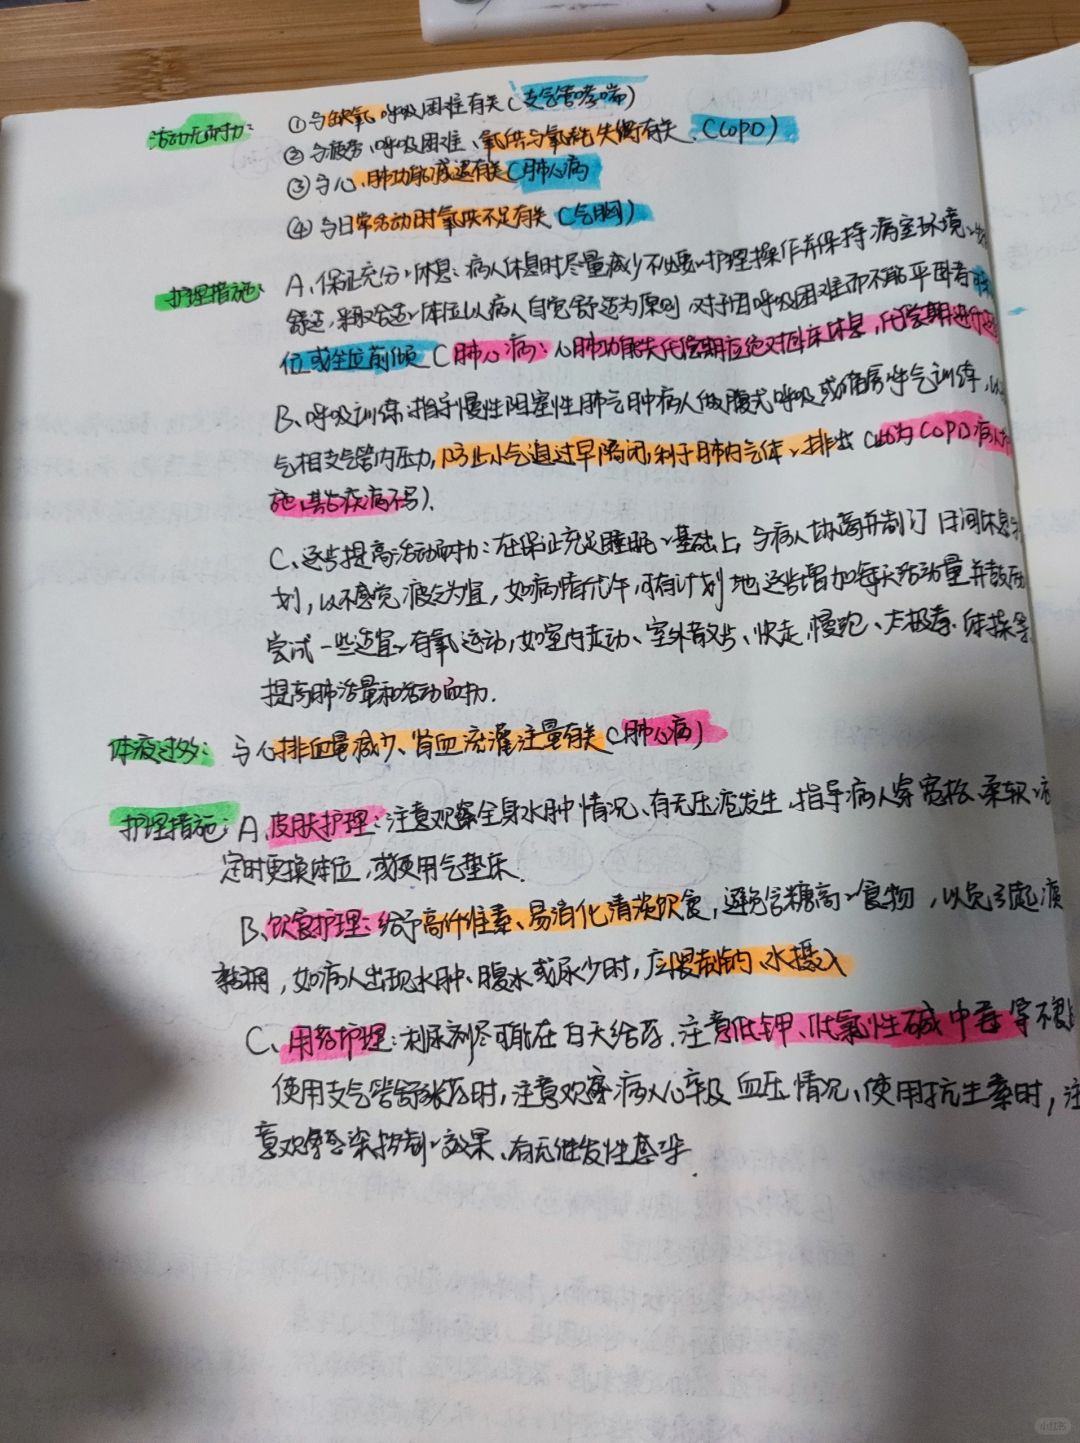 活动无耐力：①与缺氧、呼吸困难有关（支气管哮喘）
②与疲劳、呼吸困难、氧供与氧耗失衡有关（COPD）
③与心、肺功能减退有关（肺心病
④与日常活动时氧供不足有关（气胸）
护理措施：A、保证充分、休息：病人休息时尽量减少不必要、护理操作并保持病室环境、
舒适，采取合适、体位以病人自觉舒适为原则 对于因呼吸困难而不能平卧者
位或坐位前倾（肺心病：心肺功能失代偿期应绝对卧床休息，代偿期
B、呼吸训练、指导慢性阻塞性肺气肿病人做腹式呼吸或缩唇呼气训练，以
气相支气管内压力，防止小气道过早陷闭，利于肺内气体、排出（此为COPD病人
施，其它疾病不写）.
C、逐步提高活动耐力：在保证充足睡眠、基础上，与病人协商并制订日间休息与
划，以不感觉疲乏为宜，如病情允许，可有计划地逐步增加每天活动量并鼓励
尝试一些适宜、有氧运动，如室内走动、室外散步、快走，慢跑、太极拳、体操等
提高肺活量和活动耐力.
体液过多：与心排血量减少、肾血流灌注量有关（肺心病）
护理措施：A、皮肤护理：注意观察全身水肿情况、有无压疮发生，指导病人穿宽松、柔软、
定时更换体位，或使用气垫床.
B、饮食护理：给予高纤维素、易消化清淡饮食，避免含糖高、食物，以免引起痰
黏稠，如病人出现水肿、腹水或尿少时，应限制钠、水摄入
C、用药护理：利尿剂尽可能在白天给药，注意低钾、低氯性碱中毒等不良
使用支气管舒张药时，注意观察病人心率及血压情况、使用抗生素时，注
意观察感染控制、效果、有无继发性感染.
小红书